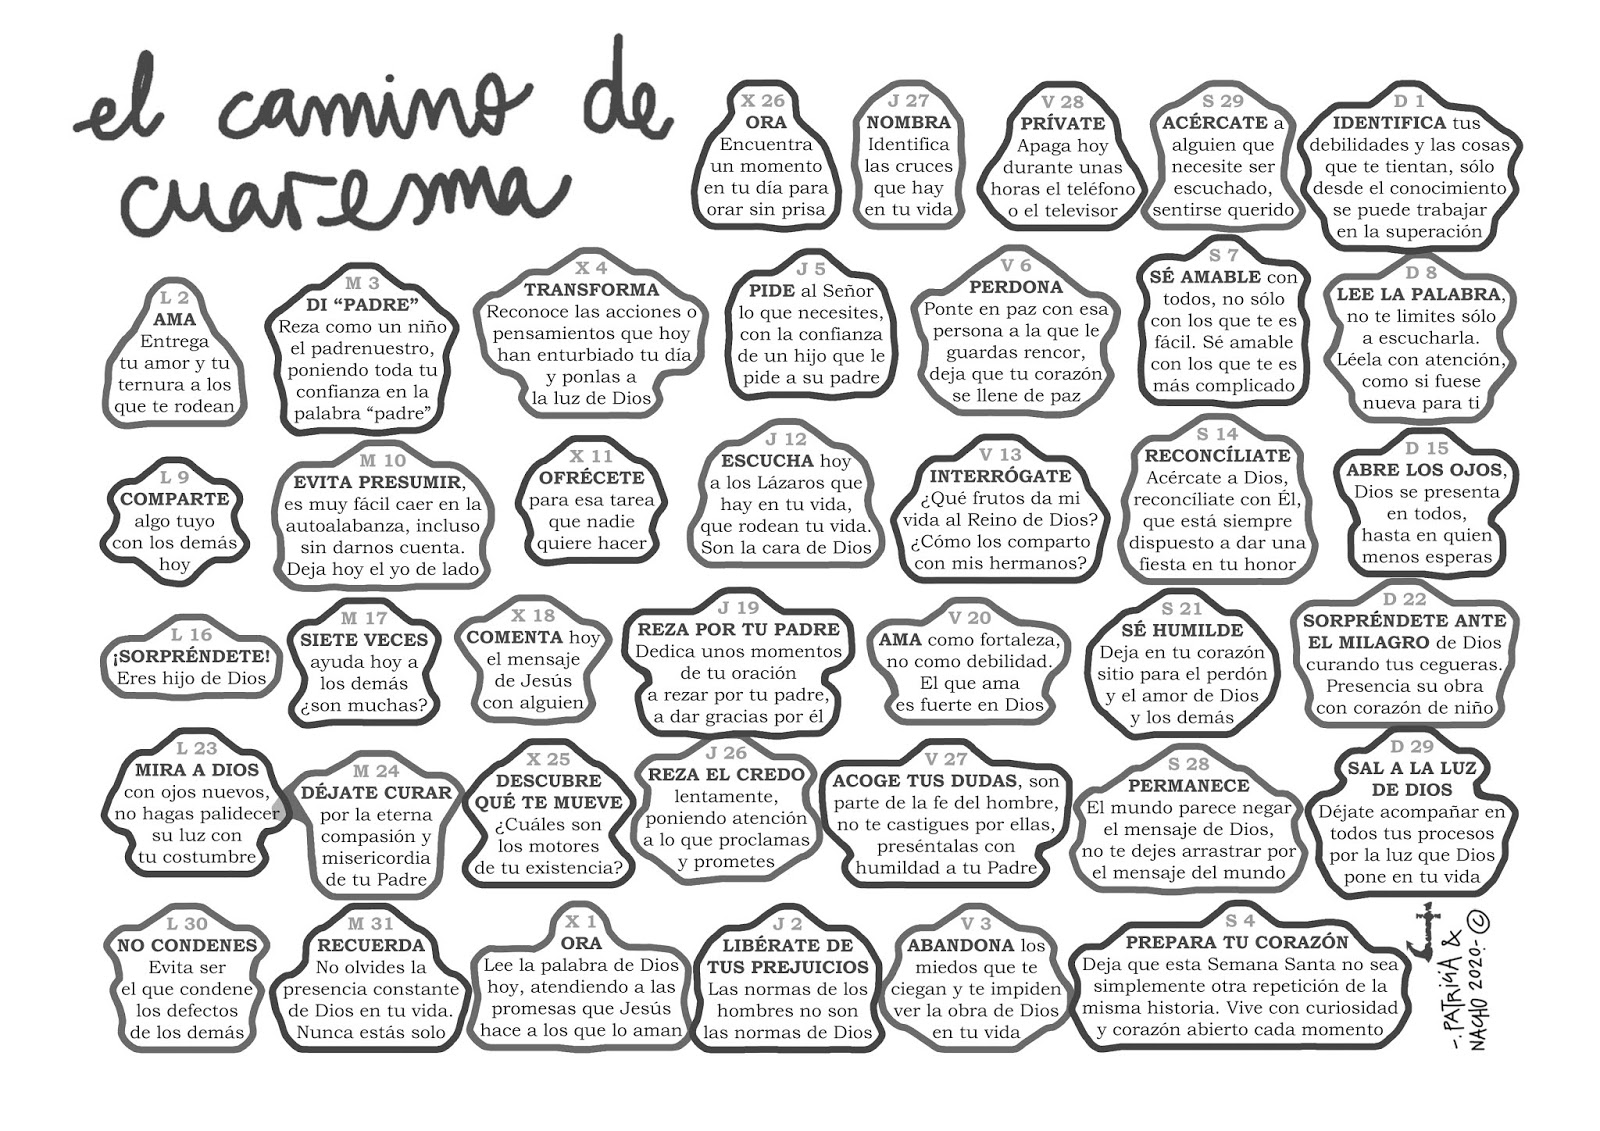 el camino de
cuaresma
X 26
ORA
Encuentra
un momento
en tu día para
orar sin prisa
J 27
NOMBRA
Identifica
las cruces
que hay
en tu vida
V 28
PRÍVATE
Apaga hoy
durante unas
horas el teléfono
o el televisor
S 29
ACÉRCATE a
alguien que
necesite ser
escuchado,
sentirse querido
D 1
IDENTIFICA tus
debilidades y las cosas
que te tientan, sólo
desde el conocimiento
se puede trabajar
en la superación
L 2
AMA
Entrega
tu amor y tu
ternura a los
que te rodean
M 3
DI “PADRE”
Reza como un niño
el padrenuestro,
poniendo toda tu
confianza en la
palabra “padre”
X 4
TRANSFORMA
Reconoce las acciones o
pensamientos que hoy
han enturbiado tu día
y ponlas a
la luz de Dios
J 5
PIDE al Señor
lo que necesites,
con la confianza
de un hijo que le
pide a su padre
V 6
PERDONA
Ponte en paz con esa
persona a la que le
guardas rencor,
deja que tu corazón
se llene de paz
S 7
SÉ AMABLE con
todos, no sólo
con los que te es
fácil. Sé amable
con los que te es
más complicado
D 8
LEE LA PALABRA,
no te limites sólo
a escucharla.
Léela con atención,
como si fuese
nueva para ti
L 9
COMPARTE
algo tuyo
con los demás
hoy
M 10
EVITA PRESUMIR,
es muy fácil caer en la
autoalabanza, incluso
sin darnos cuenta.
Deja hoy el yo de lado
X 11
OFRÉCETE
para esa tarea
que nadie
quiere hacer
J 12
ESCUCHA hoy
a los Lázaros que
hay en tu vida,
que rodean tu vida.
Son la cara de Dios
V 13
INTERRÓGATE
¿Qué frutos da mi
vida al Reino de Dios?
¿Cómo los comparto
con mis hermanos?
S 14
RECONCÍLIATE
Acércate a Dios,
reconcíliate con Él,
que está siempre
dispuesto a dar una
fiesta en tu honor
D 15
ABRE LOS OJOS,
Dios se presenta
en todos,
hasta en quien
menos esperas
L 16
¡SORPRÉNDETE!
Eres hijo de Dios
M 17
SIETE VECES
ayuda hoy a
los demás
¿son muchas?
X 18
COMENTA hoy
el mensaje
de Jesús
con alguien
J 19
REZA POR TU PADRE
Dedica unos momentos
de tu oración
a rezar por tu padre,
a dar gracias por él
V 20
AMA como fortaleza,
no como debilidad.
El que ama
es fuerte en Dios
S 21
SÉ HUMILDE
Deja en tu corazón
sitio para el perdón
y el amor de Dios
y los demás
D 22
SORPRÉNDETE ANTE
EL MILAGRO de Dios
curando tus cegueras.
Presencia su obra
con corazón de niño
L 23
MIRA A DIOS
con ojos nuevos,
no hagas palidecer
su luz con
tu costumbre
M 24
DÉJATE CURAR
por la eterna
compasión y
misericordia
de tu Padre
X 25
DESCUBRE
QUÉ TE MUEVE
¿Cuáles son
los motores
de tu existencia?
J 26
REZA EL CREDO
lentamente,
poniendo atención
a lo que proclamas
y prometes
V 27
ACOGE TUS DUDAS, son
parte de la fe del hombre,
no te castigues por ellas,
preséntalas con
humildad a tu Padre
S 28
PERMANECE
El mundo parece negar
el mensaje de Dios,
no te dejes arrastrar por
el mensaje del mundo
D 29
SAL A LA LUZ
DE DIOS
Déjate acompañar en
todos tus procesos
por la luz que Dios
pone en tu vida
L 30
NO CONDENES
Evita ser
el que condene
los defectos
de los demás
M 31
RECUERDA
No olvides la
presencia constante
de Dios en tu vida.
Nunca estás solo
X 1
ORA
Lee la palabra de Dios
hoy, atendiendo a las
promesas que Jesús
hace a los que lo aman
J 2
LIBÉRATE DE
TUS PREJUICIOS
Las normas de los
hombres no son
las normas de Dios
V 3
ABANDONA los
miedos que te
ciegan y te impiden
ver la obra de Dios
en tu vida
S 4
PREPARA TU CORAZÓN
Deja que esta Semana Santa no sea
simplemente otra repetición de la
misma historia. Vive con curiosidad
y corazón abierto cada momento
-. PATRICIA &
NACHO 2020.- ©